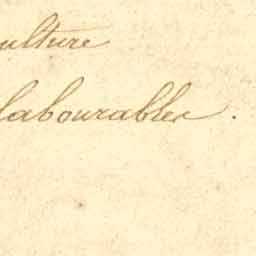 ulture
labourables.